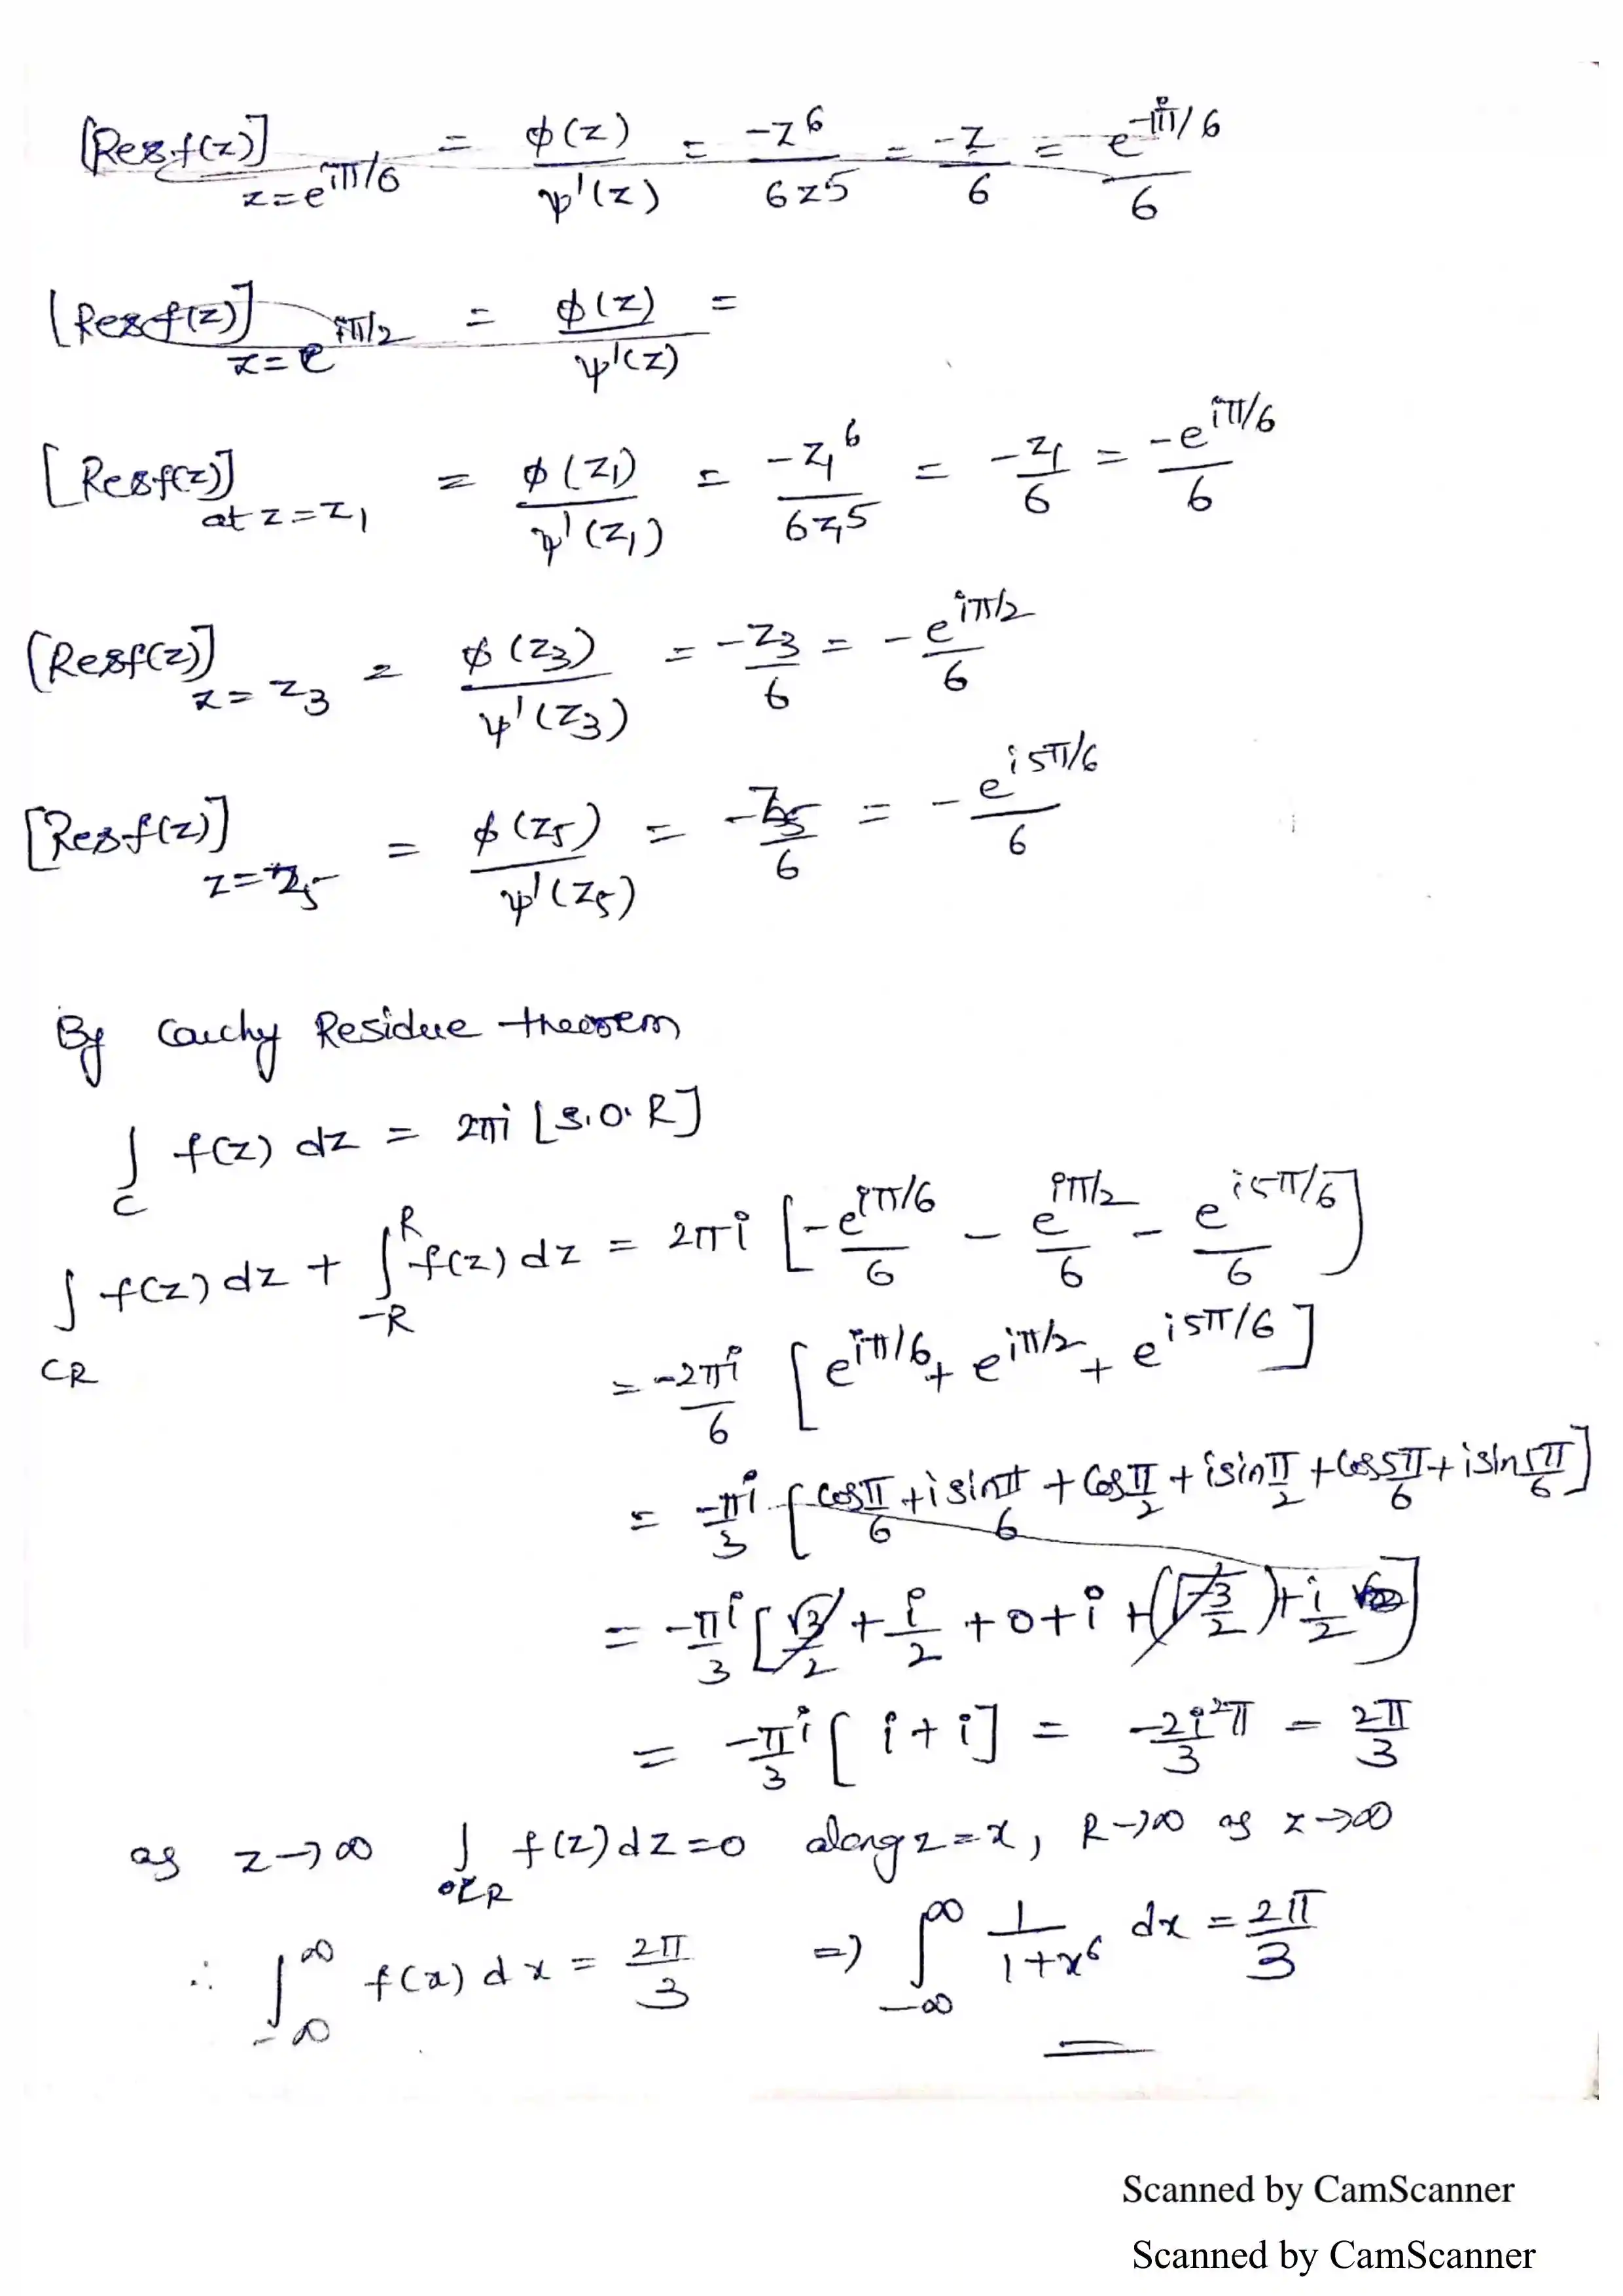 [Res f(z)] z=e^{iπ/6} = φ(z)/ψ'(z) = -z^6/6z^5 = -z/6 = e^{-iπ/6}/6
[Res f(z)] z=e^{iπ/2} = φ(z)/ψ'(z) =
[Res f(z)] at z=z_1 = φ(z_1)/ψ'(z_1) = -z_1^6/6z_1^5 = -z_1/6 = -e^{iπ/6}/6
[Res f(z)] z=z_3 = φ(z_3)/ψ'(z_3) = -z_3/6 = -e^{iπ/2}/6
[Res f(z)] z=z_5 = φ(z_5)/ψ'(z_5) = -z_5/6 = -e^{i5π/6}/6
By Cauchy Residue theorem
∫_C f(z) dz = 2πi [S.O.R]
∫_{CR} f(z) dz + ∫_{-R}^{R} f(z) dz = 2πi [-e^{iπ/6}/6 - e^{iπ/2}/6 - e^{i5π/6}/6]
= -2πi/6 [e^{iπ/6} + e^{iπ/2} + e^{i5π/6}]
= -πi/3 [cos π/6 + i sin π/6 + cos π/2 + i sin π/2 + cos 5π/6 + i sin 5π/6]
= -πi/3 [√3/2 + i/2 + 0 + i + (-√3/2) + i/2]
= -πi/3 [i + i] = -2i²π/3 = 2π/3
as z→∞ ∫_{CR} f(z) dz = 0 along z = x, R→∞ as z→∞
∴ ∫_{-∞}^{∞} f(x) dx = 2π/3 ⇒ ∫_{-∞}^{∞} 1/(1+x^6) dx = 2π/3
Scanned by CamScanner
Scanned by CamScanner